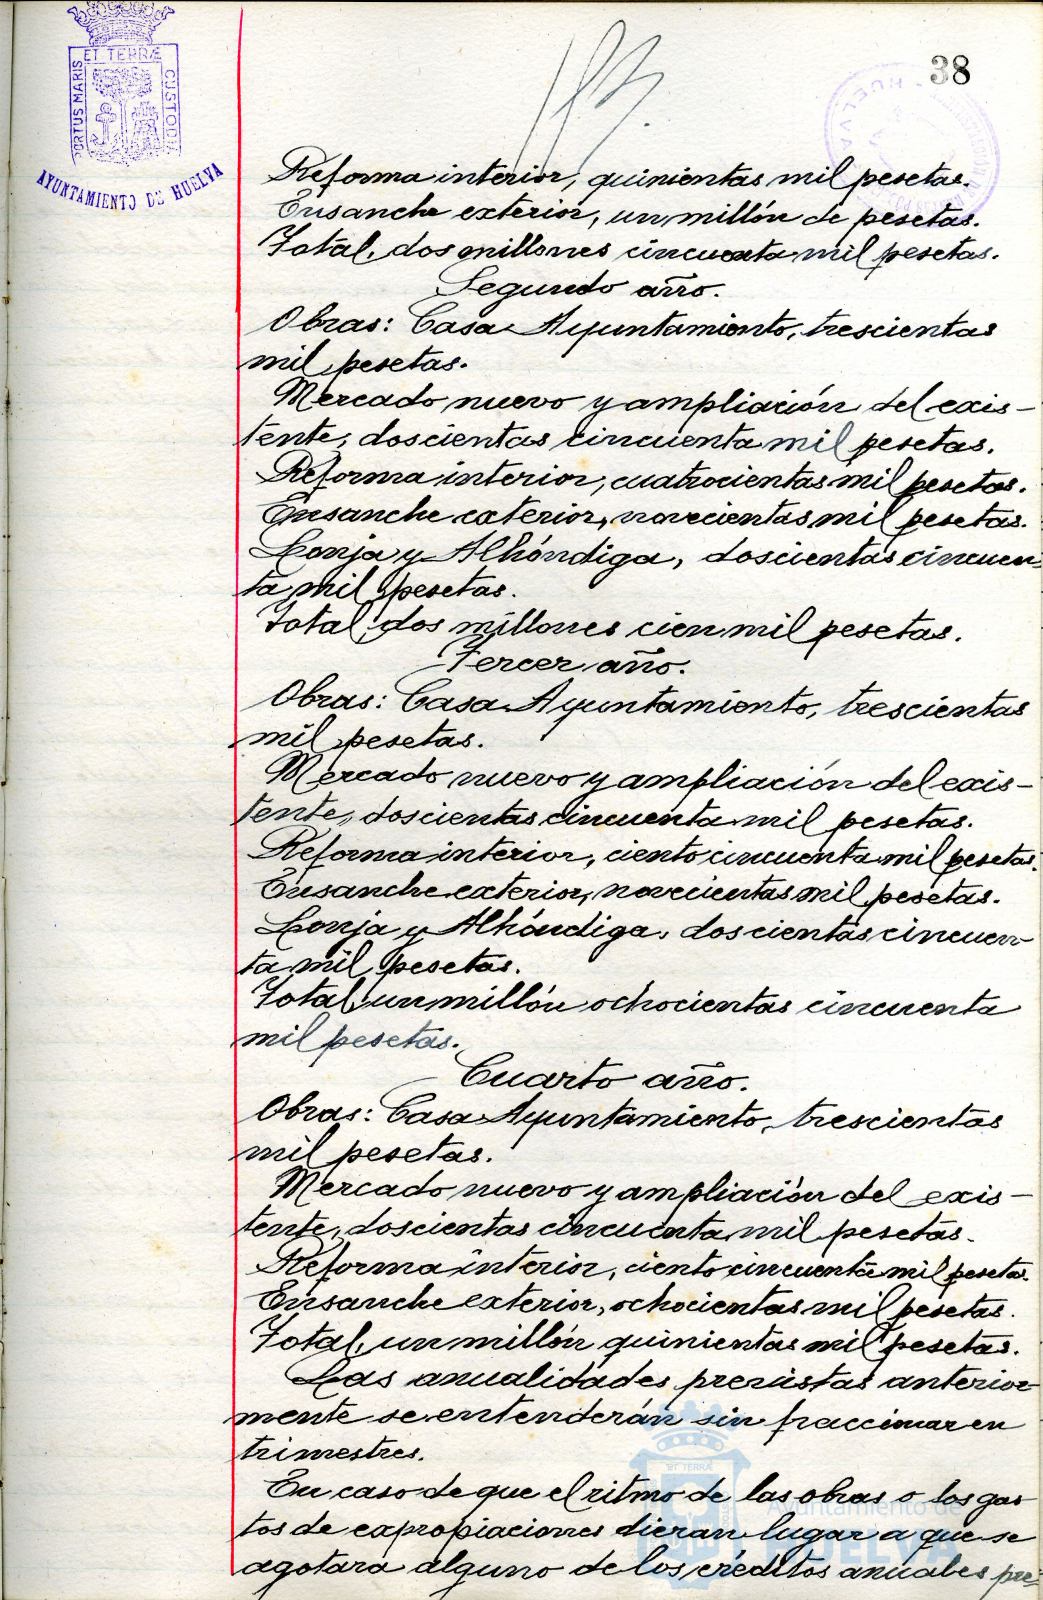 ET TERRÆ
PORTUS MARIS
CUSTODIA
AYUNTAMIENTO DE HUELVA
38
Reforma interior, quinientas mil pesetas.
Ensanche exterior, un millón de pesetas.
Total, dos millones cincuenta mil pesetas.
Segundo año.
Obras: Casa Ayuntamiento, trescientas
mil pesetas.
Mercado nuevo y ampliación del exis-
tente, doscientas cincuenta mil pesetas.
Reforma interior, cuatrocientas mil pesetas.
Ensanche exterior, novecientas mil pesetas.
Lonja y Alhóndiga, doscientas cincuen-
ta mil pesetas.
Total, dos millones cien mil pesetas.
Tercer año.
Obras: Casa Ayuntamiento, trescientas
mil pesetas.
Mercado nuevo y ampliación del exis-
tente, doscientas cincuenta mil pesetas.
Reforma interior, ciento cincuenta mil pesetas.
Ensanche exterior, novecientas mil pesetas.
Lonja y Alhóndiga, doscientas cincuen-
ta mil pesetas.
Total, un millón ochocientas cincuenta
mil pesetas.
Cuarto año.
Obras: Casa Ayuntamiento, trescientas
mil pesetas.
Mercado nuevo y ampliación del exis-
tente, doscientas cincuenta mil pesetas.
Reforma interior, ciento cincuenta mil pesetas.
Ensanche exterior, ochocientas mil pesetas.
Total, un millón quinientas mil pesetas.
Las anualidades previstas anterior-
mente se entenderán sin fraccionar en
trimestres.
En caso de que el ritmo de las obras o los gas-
tos de expropiaciones dieran lugar a que se
agotara alguno de los créditos anuales pre-
Ayuntamiento de
HUELVA